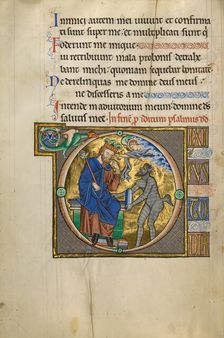 Inimici autem mei uiuunt et confirma
ti sunt super me: et multiplicati sunt q
oderunt me inique
ui retribuunt mala pro bonis detrahe
bant michi: quoniam sequebar bonitate
e derelinquas me domine deus meus: ne
discesseris a me
ntende in adiutorium meum: domine deus
salutis mee In finem